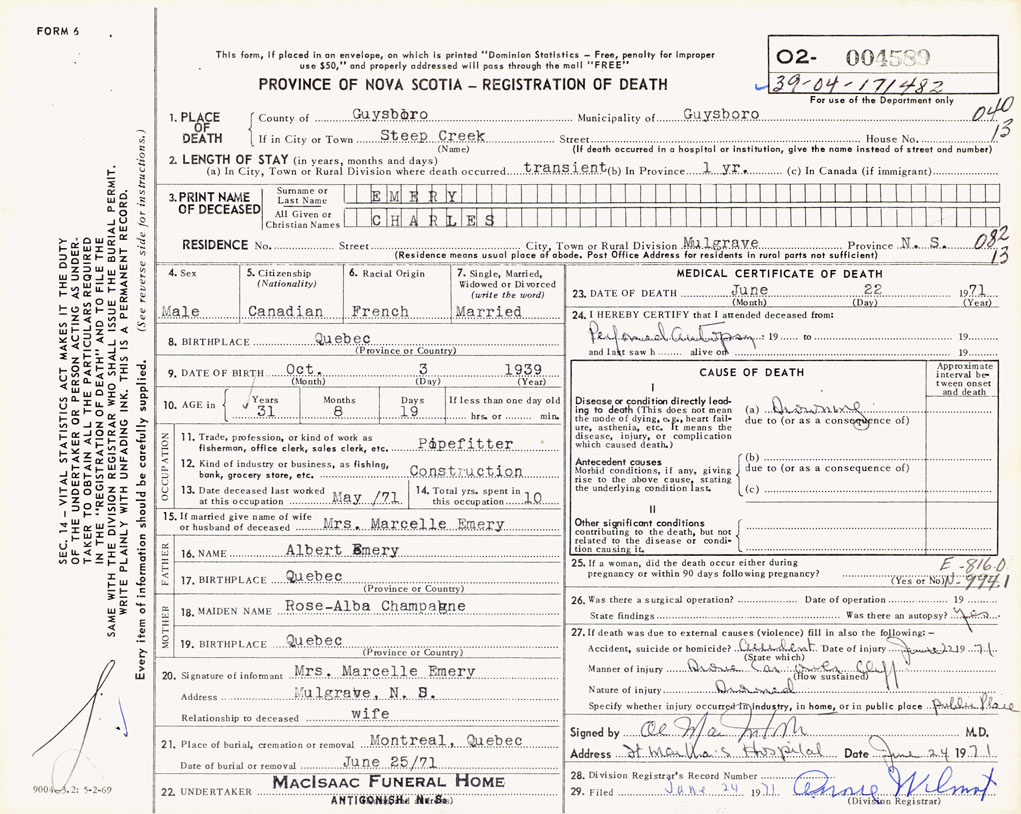 FORM 6
This form, if placed in an envelope, on which is printed "Dominion Statistics – Free, penalty for improper
use $50," and properly addressed will pass through the mail "FREE"
PROVINCE OF NOVA SCOTIA – REGISTRATION OF DEATH
02- 004589
39-04-171482
For use of the Department only
SEC. 14 – VITAL STATISTICS ACT MAKES IT THE DUTY
OF THE UNDERTAKER OR PERSON ACTING AS UNDER-
TAKER TO OBTAIN ALL THE PARTICULARS REQUIRED
IN THE "REGISTRATION OF DEATH" AND TO FILE THE
SAME WITH THE DIVISION REGISTRAR WHO SHALL ISSUE THE BURIAL PERMIT.
WRITE PLAINLY WITH UNFADING INK. THIS IS A PERMANENT RECORD.
Every item of information should be carefully supplied. (See reverse side for instructions.)
1. PLACE OF DEATH
County of Guysboro Municipality of Guysboro 040
If in City or Town Steep Creek Street House No. 13
(Name) (If death occurred in a hospital or institution, give the name instead of street and number)
2. LENGTH OF STAY (in years, months and days)
(a) In City, Town or Rural Division where death occurred transient (b) In Province 1 yr. (c) In Canada (if immigrant)
3. PRINT NAME OF DECEASED
Surname or Last Name EMERY
All Given or Christian Names CHARLES
RESIDENCE No. Street City, Town or Rural Division Mulgrave Province N. S. 082
(Residence means usual place of abode. Post Office Address for residents in rural parts not sufficient) 13
4. Sex
Male
5. Citizenship (Nationality)
Canadian
6. Racial Origin
French
7. Single, Married, Widowed or Divorced (write the word)
Married
8. BIRTHPLACE Quebec
(Province or Country)
9. DATE OF BIRTH Oct. 3 1939
(Month) (Day) (Year)
10. AGE in Years Months Days If less than one day old
31 8 19 hrs. or min.
OCCUPATION
11. Trade, profession, or kind of work as
fisherman, office clerk, sales clerk, etc. Pipefitter
12. Kind of industry or business, as fishing,
bank, grocery store, etc. Construction
13. Date deceased last worked at this occupation May /71
14. Total yrs. spent in this occupation 10
15. If married give name of wife
or husband of deceased Mrs. Marcelle Emery
FATHER
16. NAME Albert Emery
17. BIRTHPLACE Quebec
(Province or Country)
MOTHER
18. MAIDEN NAME Rose-Alba Champagne
19. BIRTHPLACE Quebec
(Province or Country)
20. Signature of informant Mrs. Marcelle Emery
Address Mulgrave, N. S.
Relationship to deceased wife
21. Place of burial, cremation or removal Montreal, Quebec
Date of burial or removal June 25/71
22. UNDERTAKER MACISAAC FUNERAL HOME
ANTIGONISH, N. S.
5-2-69
MEDICAL CERTIFICATE OF DEATH
23. DATE OF DEATH June 22 1971
(Month) (Day) (Year)
24. I HEREBY CERTIFY that I attended deceased from:
Performed Autopsy 19 to 19
and last saw h alive on 19
CAUSE OF DEATH
Approximate interval between onset and death
I
Disease or condition directly lead-
ing to death (This does not mean
the mode of dying, e.g., heart fail-
ure, asthenia, etc. It means the
disease, injury, or complication
which caused death.)
(a) Drowning
due to (or as a consequence of)
Antecedent causes
Morbid conditions, if any, giving
rise to the above cause, stating
the underlying condition last.
(b)
due to (or as a consequence of)
(c)
II
Other significant conditions
contributing to the death, but not
related to the disease or condi-
tion causing it.
25. If a woman, did the death occur either during
pregnancy or within 90 days following pregnancy?
(Yes or No)
E-816.0
N-994.1
26. Was there a surgical operation? Date of operation 19
State findings Was there an autopsy? Yes
27. If death was due to external causes (violence) fill in also the following: –
Accident, suicide or homicide? Accident Date of injury June 22 1971
(State which)
Manner of injury Drove Car over Cliff
(How sustained)
Nature of injury Drowned
Specify whether injury occurred in industry, in home, or in public place Public Place
Signed by M.D.
Address St Martha's Hospital Date June 24 1971
28. Division Registrar's Record Number
29. Filed June 24 1971 Annie Wilmot
(Division Registrar)